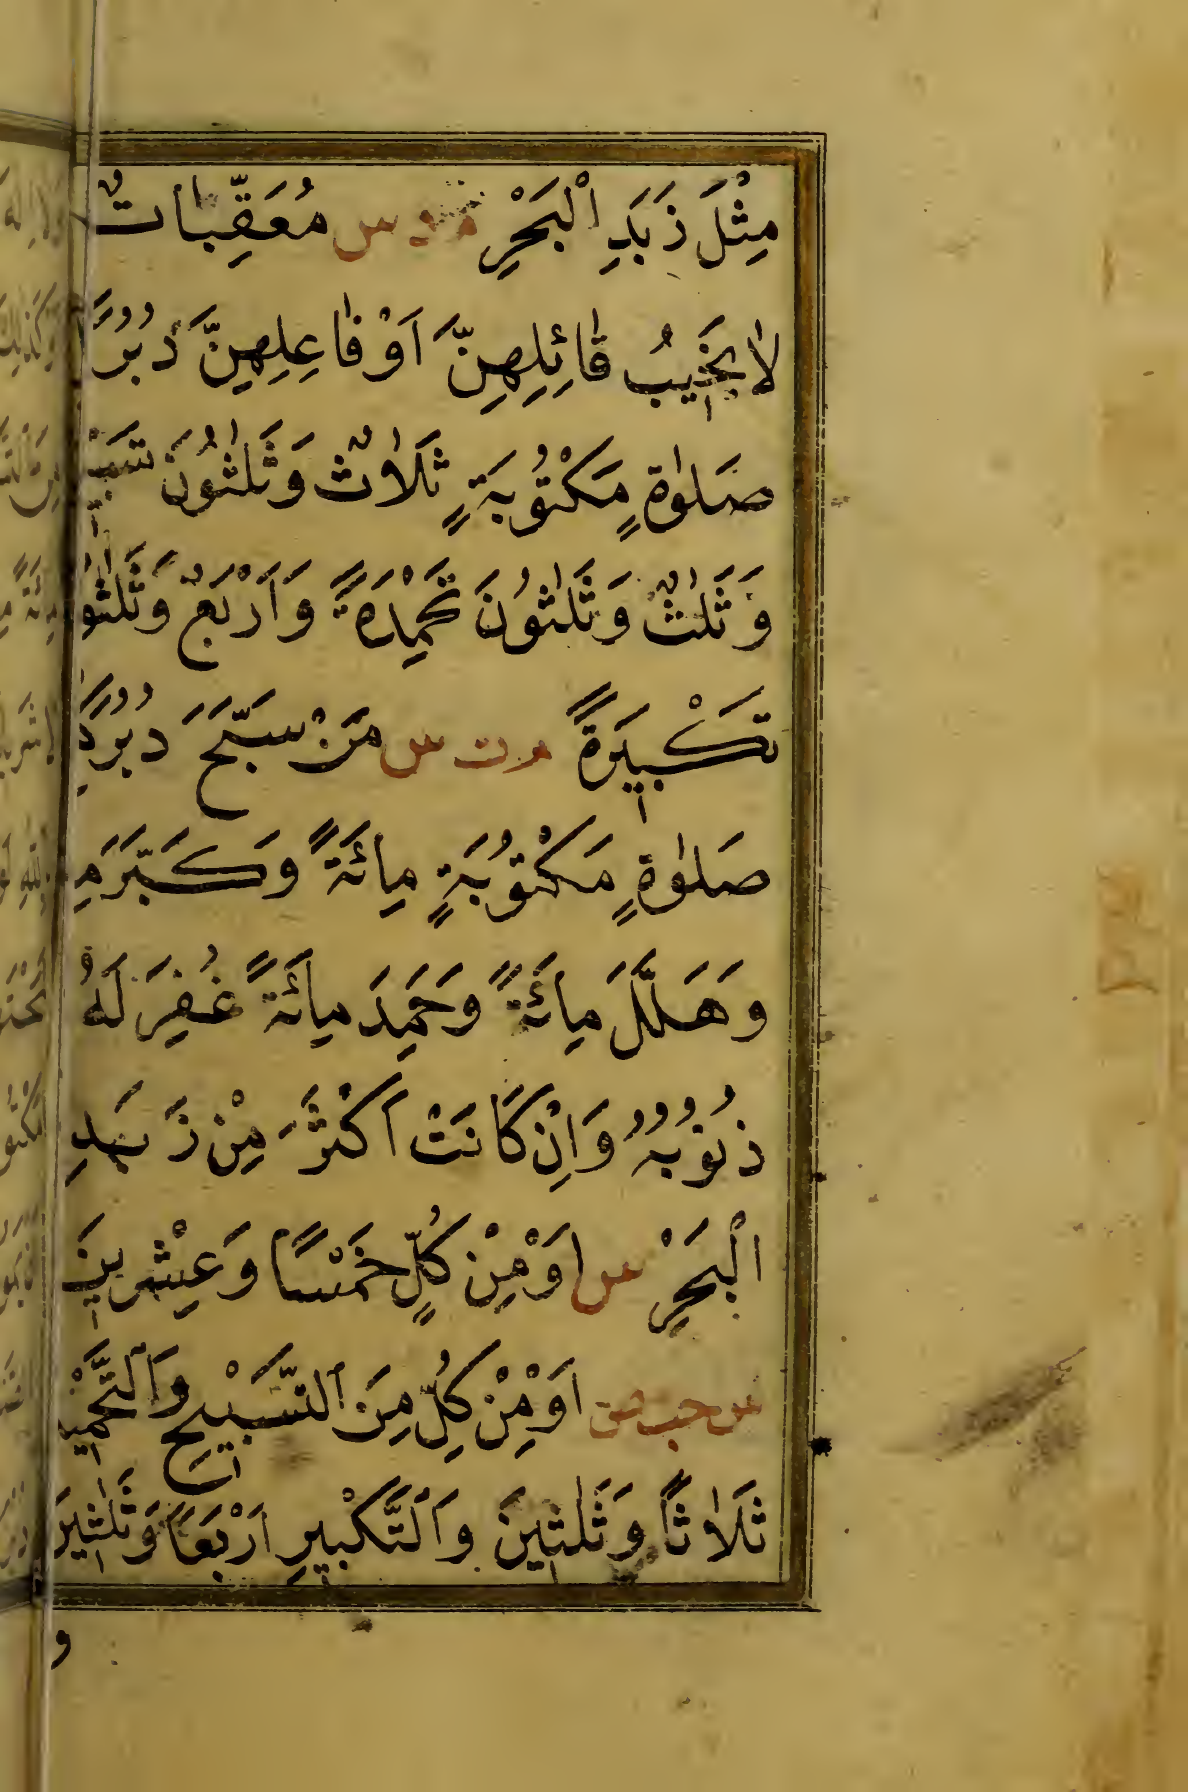 مِثْلَ زَبَدِ الْبَحْرِ م د س مُعَقِّبَاتٌ
لَا يَخِيبُ قَائِلُهُنَّ اَوْ فَاعِلُهُنَّ دُبُرَ
صَلٰوةٍ مَكْتُوبَةٍ ثَلَاثٌ وَثَلٰثُونَ
وَثَلٰثٌ وَثَلٰثُونَ تَحْمِدَةً وَاَرْبَعٌ وَثَلٰثُو
تَكْبِيرَةً م ت س مَنْ سَبَّحَ دُبُرَ
صَلٰوةٍ مَكْتُوبَةٍ مِائَةً وَكَبَّرَ مِ
وَهَلَّلَ مِائَةً وَحَمِدَ مِائَةً غُفِرَ لَهُ
ذُنُوبُهُ وَاِنْ كَانَتْ اَكْثَرَ مِنْ زَبَدِ
الْبَحْرِ س اَوْ مِنْ كُلٍّ خَمْسًا وَعِشْرِينَ
س حب مس اَوْ مِنْ كُلٍّ مِنَ التَّسْبِيحِ وَالتَّحْمِيد
ثَلَاثًا وَثَلٰثِينَ وَالتَّكْبِيرِ اَرْبَعًا وَثَلٰثِينَ
و